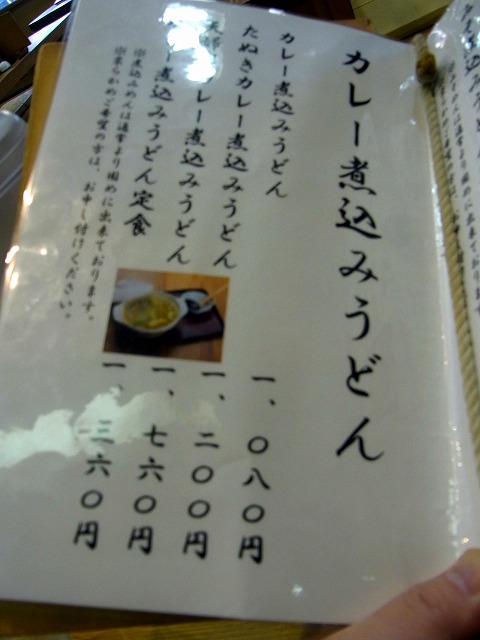 カレー煮込みうどん
カレー煮込みうどん
たぬきカレー煮込みうどん
レー煮込みうどん
ー煮込みうどん定食
※煮込みめんは通常より固めに出来ております。
※柔らかめご希望の方は、お申し付けください。
一、〇八〇円
一、二〇〇円
一、七六〇円
一、三六〇円